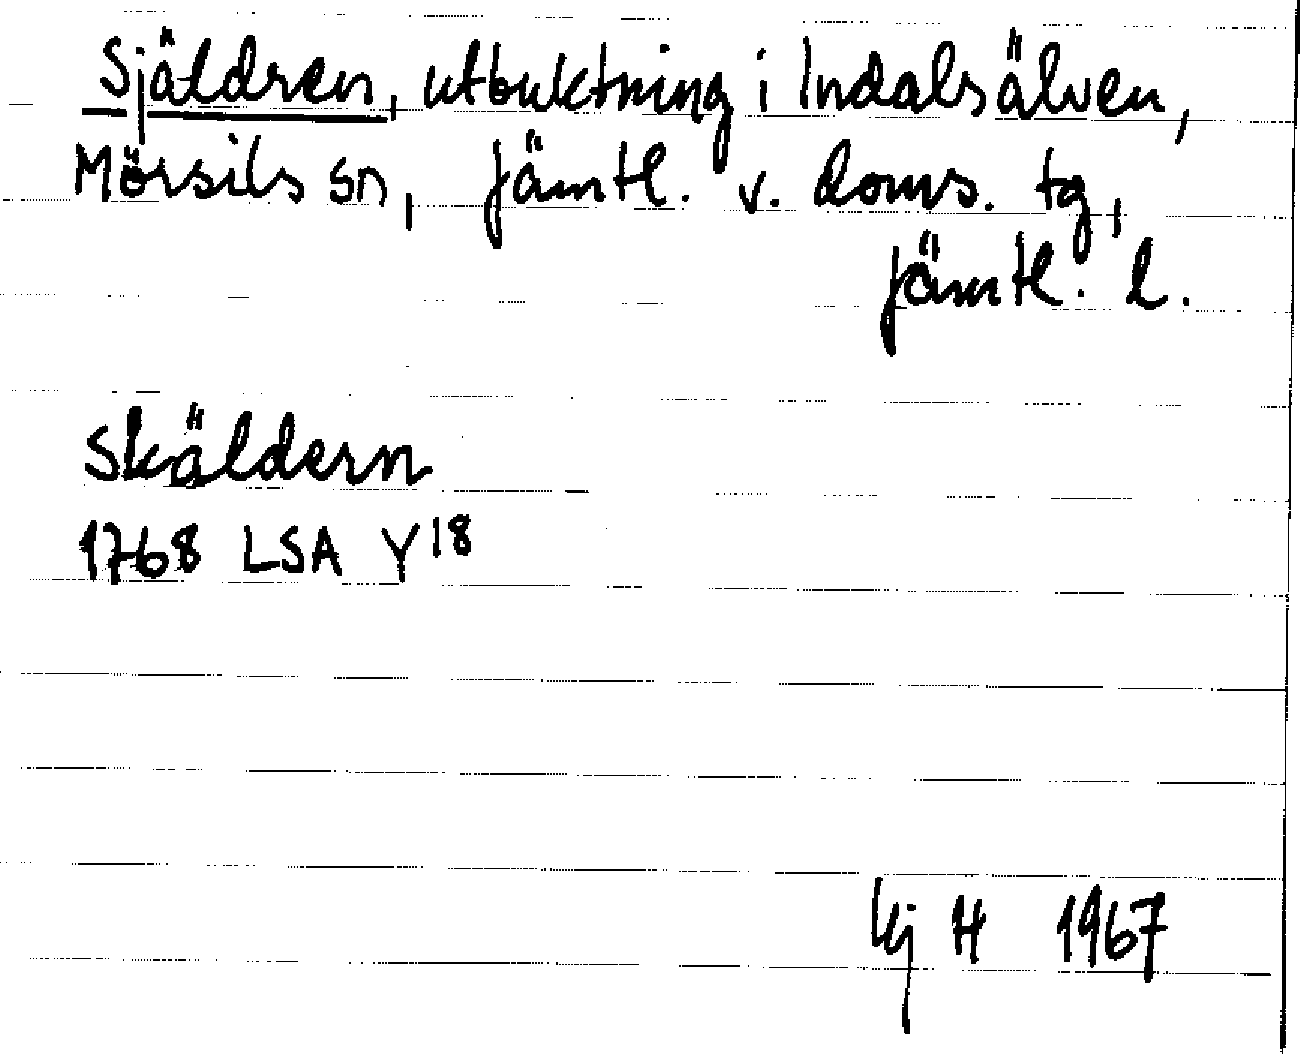 Själdren, utbuktning i Indalsälven,
Mörsils sn, Jämtl. v. doms. tg,
Jämtl. l.
Skäldern
1768 LSA Y18
Kj H 1967